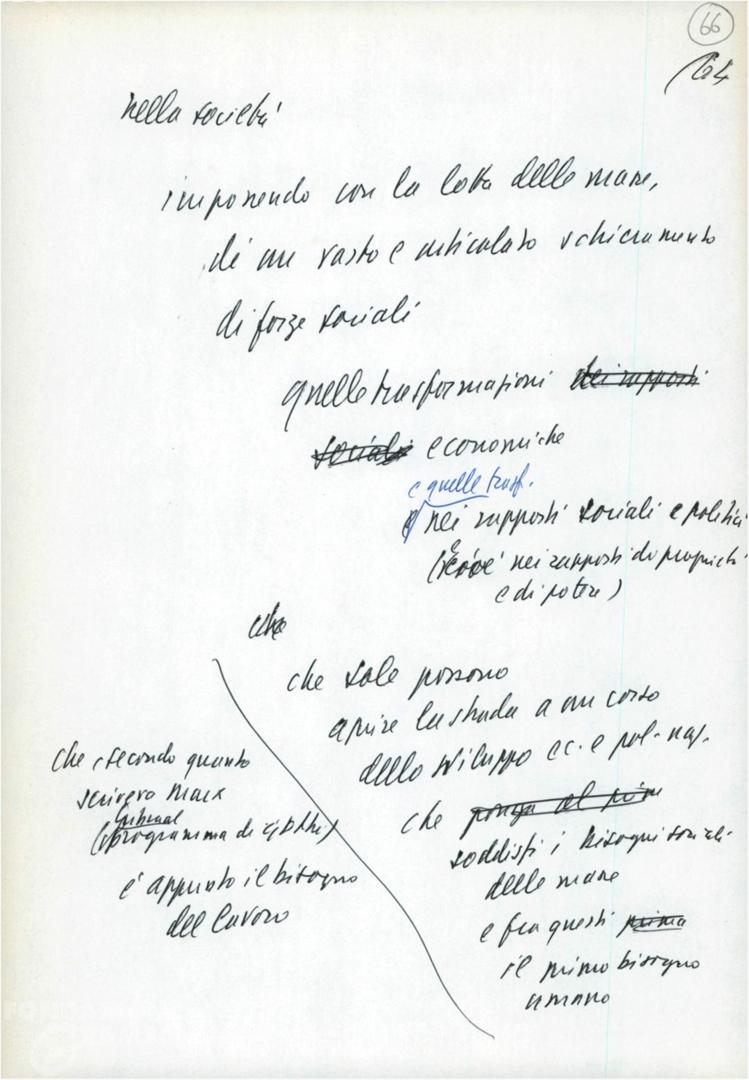 66
64
nella società
imponendo con la lotta delle masse,
di un vasto e articolato schieramento
di forze sociali
quelle trasformazioni dei rapporti
sociali economiche
e quelle trasf.
nei rapporti sociali e politici
(cioè nei rapporti di proprietà
e di potere)
che
che sole possono
aprire la strada a un corso
dello sviluppo ec. e pol. naz.
che
soddisfi i bisogni sociali
delle masse
e fra questi prima
il primo bisogno
umano
che, secondo quanto
scriveva Marx
(programma di Gotha)
è appunto il bisogno
del lavoro